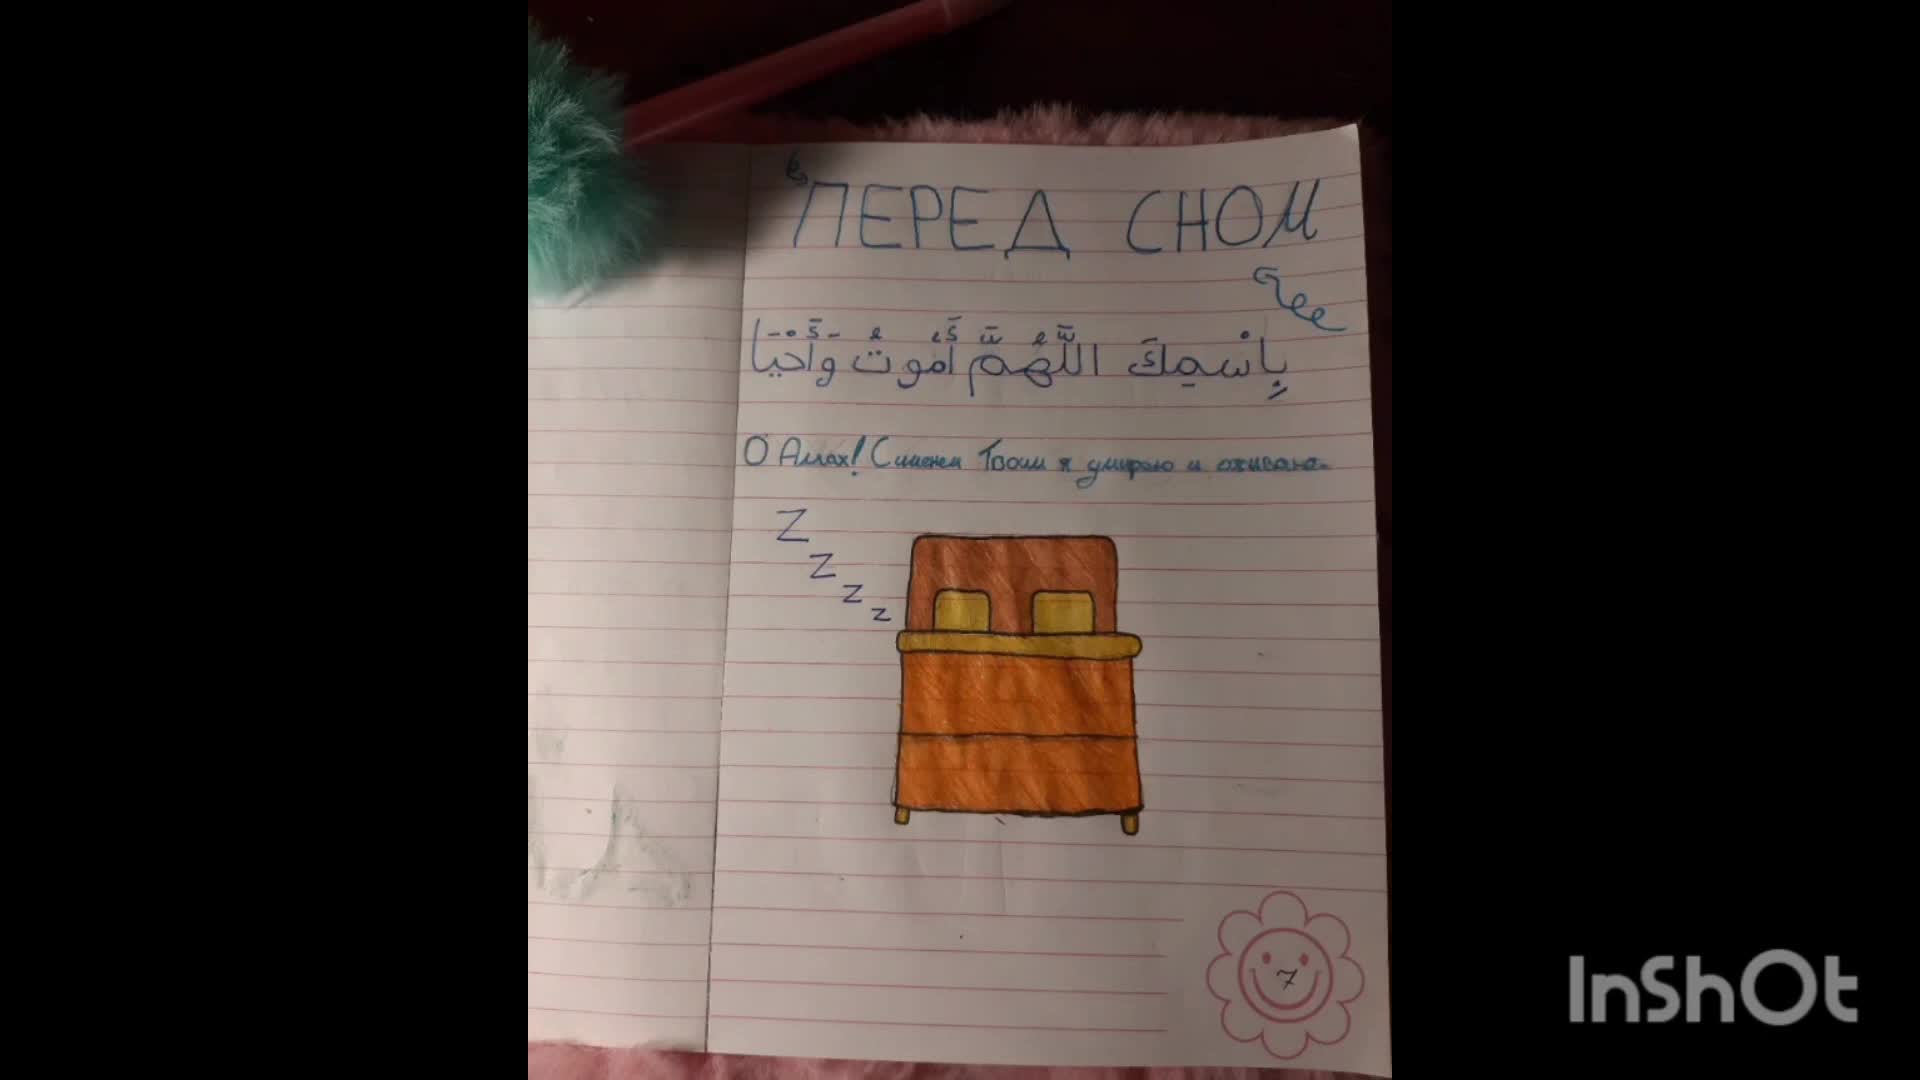 ПЕРЕД СНОМ
بِاسْمِكَ اللَّهُمَّ أَمُوتُ وَأَحْيَا
О Аллах! С именем Твоим я умираю и оживаю.
Z
Z
Z
Z
7
InShOt